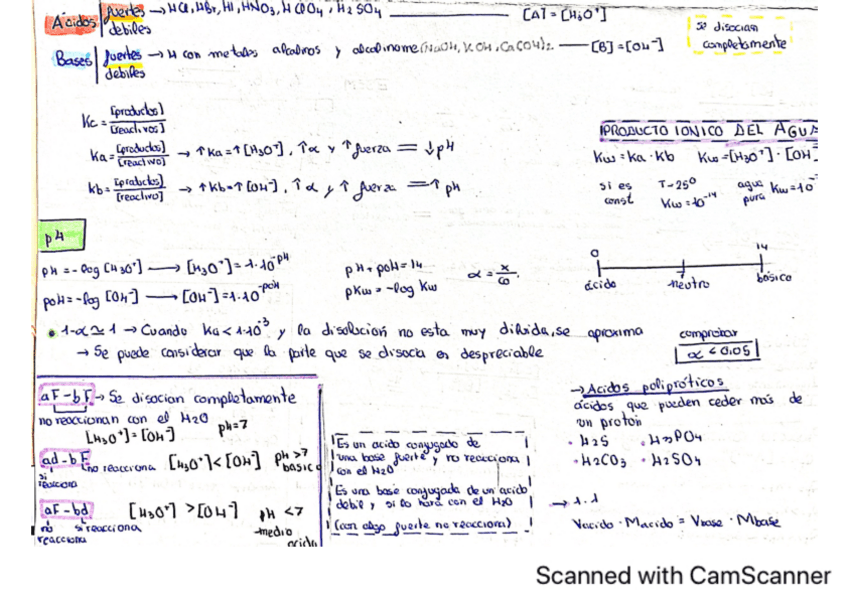 Ácidos fuertes → HCl, HBr, HI, HNO3, HClO4, H2SO4 [A] = [H3O+]
debiles
Bases fuertes → H con metales alcalinos y alcalinome (NaOH, KOH, Ca(OH)2. [B] = [OH-]
debiles
se disocian
completamente
Kc = [productos]/[reactivos]
Ka = [productos]/[reactivo] → ↑Ka = ↑[H3O+], ↑α y ↑fuerza = ↓pH
Kb = [productos]/[reactivo] → ↑Kb = ↑[OH-], ↑α y ↑ fuerza = ↑ pH
PRODUCTO IONICO DEL AGUA
Kw = Ka · Kb Kw = [H3O+] · [OH-]
si es const T=25º Kw=10^-14 agua pura Kw=10
pH
pH = -log [H3O+] → [H3O+] = 1·10^-pH
poH = -log [OH-] → [OH-] = 1·10^-poH
pH + poH = 14
pKw = -log Kw
α = x/co.
0 14
ácido neutro básico
• 1-α ≃ 1 → Cuando Ka < 1·10^-3 y la disolución no esta muy diluida, se aproxima
→ Se puede considerar que la parte que se disocia es despreciable
comprobar
α < 0.05
aF-bF → Se disocian completamente
no reaccionan con el H2O
[H3O+] = [OH-] pH=7
ad-bF no reacciona [H3O+] < [OH-] pH >7
básico
si
reacciona
aF-bd [H3O+] > [OH-] pH <7
no si reacciona
reacciona
medio
acido
Es un acido conjugado de
una base fuerte y no reacciona
con el H2O
Es una base conjugada de un acido
debil y si lo hará con el H2O
(con algo fuerte no reacciona)
→ Acidos polipróticos
ácidos que pueden ceder más de
un protón
• H2S • H3PO4
• H2CO3 • H2SO4
→ 1.1
Vacido · Macido = Vbase · Mbase
Scanned with CamScanner